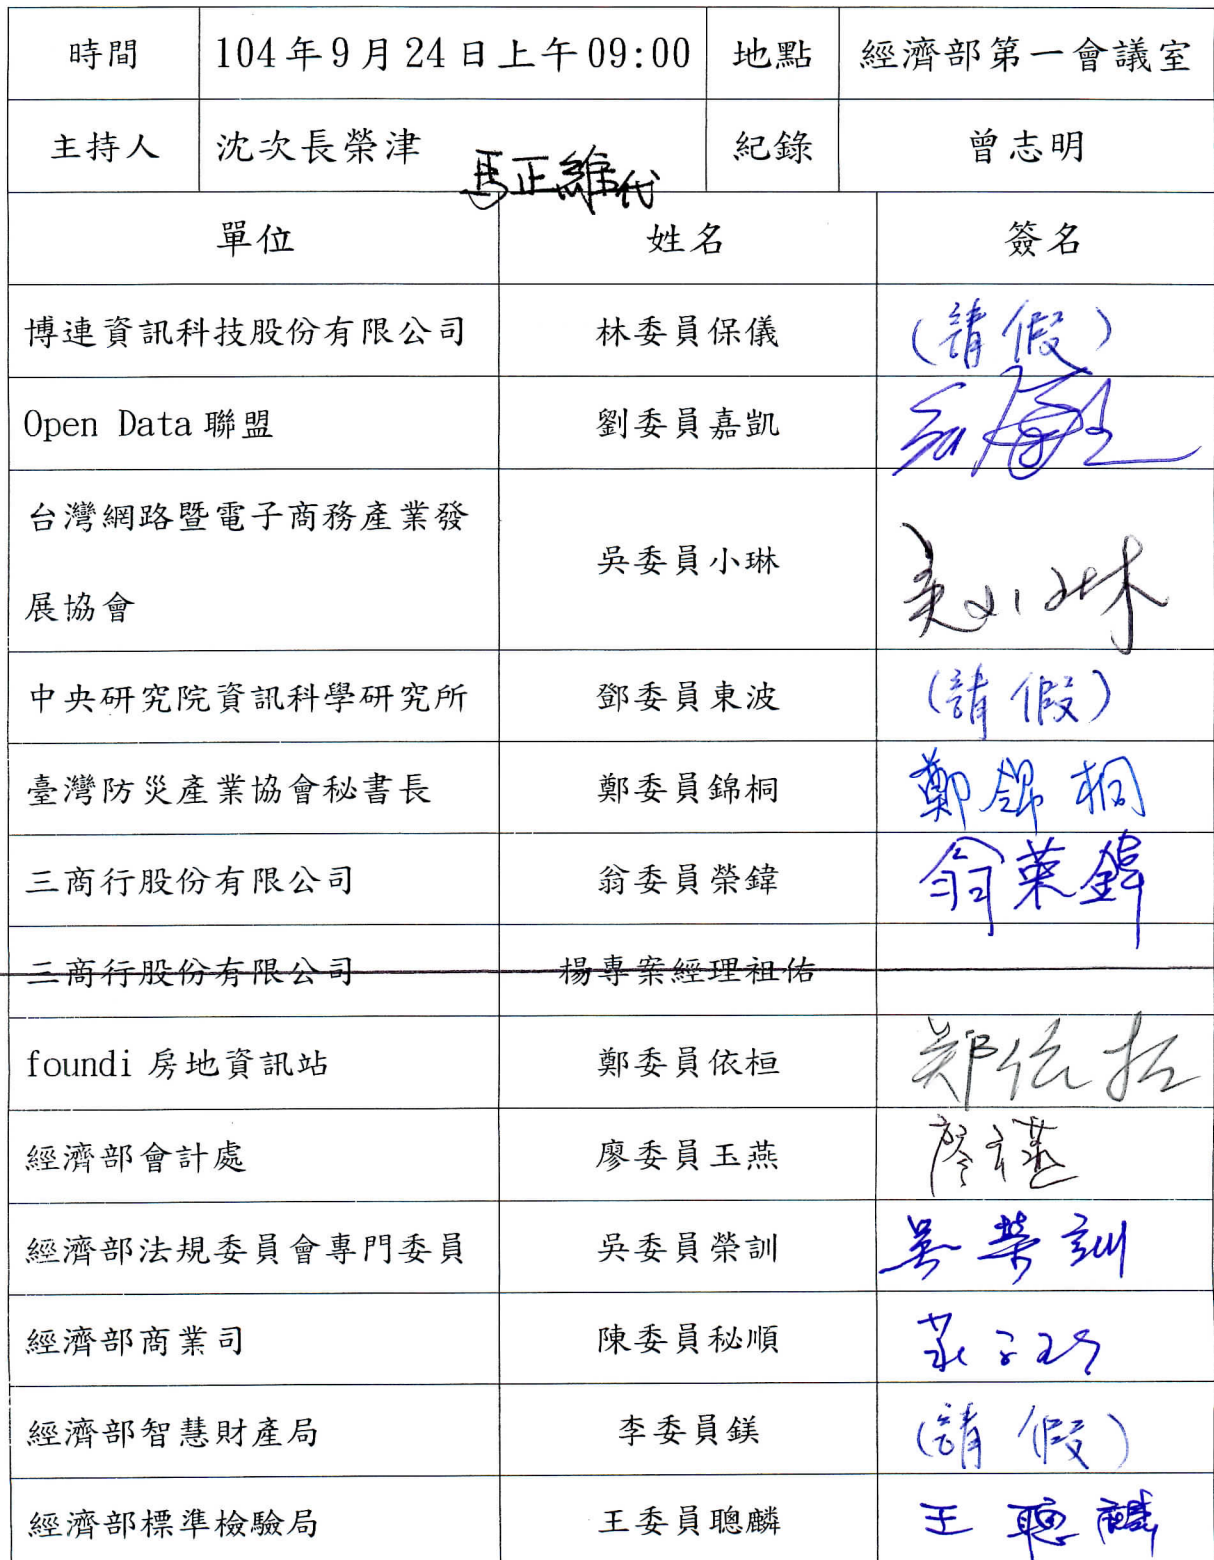 時間 104年9月24日上午09:00 地點 經濟部第一會議室
主持人 沈次長榮津 紀錄 曾志明
馬正維代
單位 姓名 簽名
博連資訊科技股份有限公司 林委員保儀 (請假)
Open Data聯盟 劉委員嘉凱
台灣網路暨電子商務產業發
展協會 吳委員小琳 吳小琳
中央研究院資訊科學研究所 鄧委員東波 (請假)
臺灣防災產業協會秘書長 鄭委員錦桐 鄭錦桐
三商行股份有限公司 翁委員榮鍏 翁榮鍏
三商行股份有限公司 楊專案經理祖佑
foundi房地資訊站 鄭委員依桓 鄭依桓
經濟部會計處 廖委員玉燕 廖玉燕
經濟部法規委員會專門委員 吳委員榮訓 吳榮訓
經濟部商業司 陳委員秘順
經濟部智慧財產局 李委員鎂 (請假)
經濟部標準檢驗局 王委員聰麟 王聰麟